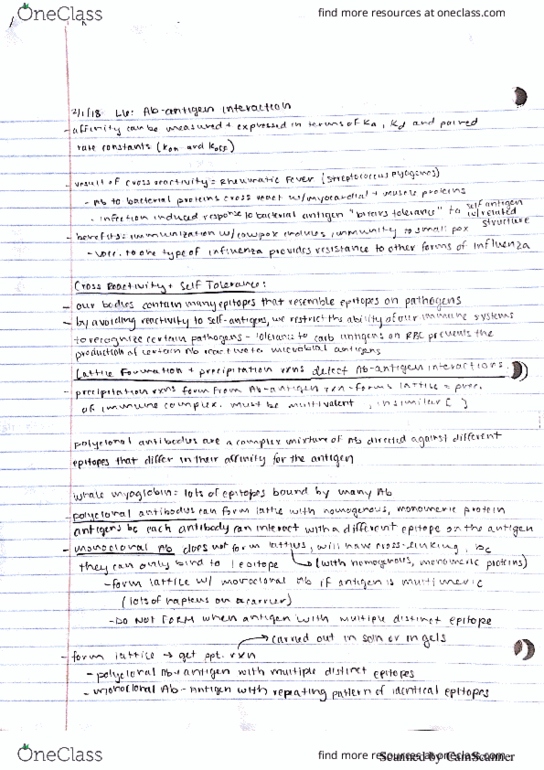 OneClass
find more resources at oneclass.com
2/1/18 L6: Ab-antigen interaction
- affinity can be measured + expressed in terms of Ka, Kd and paired
rate constants (Kon and Koff)
- result of cross reactivity = Rheumatic Fever (Streptococcus pyogenes)
- Ab to bacterial proteins cross react w/myocardial + proteins
- infection induced response to bacterial antigen "breaks tolerance" to self antigen
w/related
structure
- benefits: immunization w/cowpox induces immunity to small pox
- vacc. to one type of influenza provides resistance to other forms of influenza
Cross Reactivity + Self Tolerance:
- our bodies contain many epitopes that resemble epitopes on pathogens
- by avoiding reactivity to self-antigens, we restrict the ability of our immune systems
to recognize certain pathogens - tolerance to carb antigens on RBC prevents the
production of certain Ab reactive to microbial antigens
Lattice Formation + precipitation rxns detect Ab-antigen interactions
- precipitation rxns form from Ab-antigen rxn - forms lattice = prec.
of immune complex. must be multivalent, in similar [ ]
polyclonal antibodies are a complex mixture of Ab directed against different
epitopes that differ in their affinity for the antigen
whale myoglobin: lots of epitopes bound by many Ab
- polyclonal antibodies can form lattice with homogenous, monomeric protein
antigens bc each antibody can interact with a different epitope on the antigen
- monoclonal Ab does not form lattices, will have cross-linking, bc
they can only bind to 1 epitope → (with homogenous, monomeric proteins)
- form lattice w/ monoclonal Ab if antigen is multimeric
(lots of haptens on a carrier)
- DO NOT FORM when antigen with multiple distinct epitope
→ carried out in soln or in gels
- form lattice → get ppt. rxn
- polyclonal Ab + antigen with multiple distinct epitopes
- monoclonal Ab - antigen with repeating pattern of identical epitopes
OneClass
find more resources at oneclass.com
Scanned by CamScanner